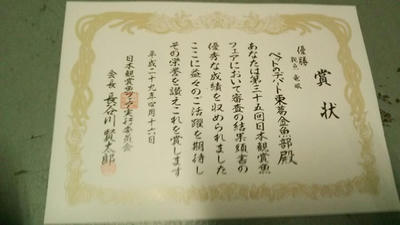 賞状
優勝
ペットのデパート東葛金魚部殿
あなたは第三十五回日本観賞魚
フェアにおいて審査の結果頭書の
優秀な成績を収められました
ここに益々のご活躍を期待し
その栄誉を讃えこれを賞します
平成二十九年四月十六日
日本観賞魚フェア実行委員会
会長 長谷川賢太郎